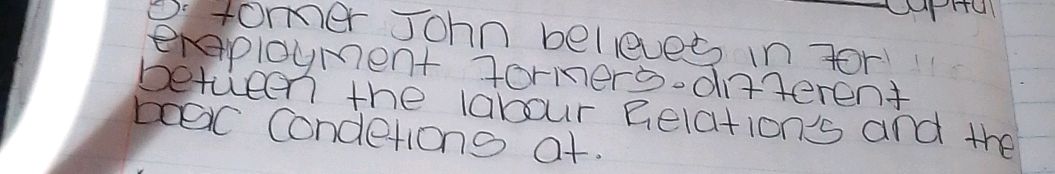 Capital
5. former John believes in for
employment formers. different
between the labour Relation's and the
basic condetions at.